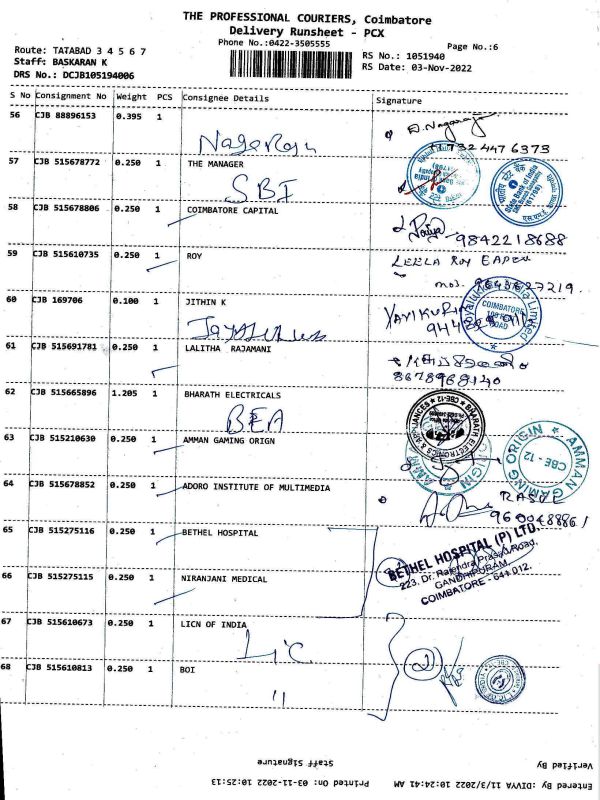 THE PROFESSIONAL COURIERS, Coimbatore
Delivery Runsheet - PCX
Phone No.:0422-3505555
Page No.:6
Route: TATABAD 3 4 5 6 7
RS No.: 1051940
Staff: BASKARAN K
RS Date: 03-Nov-2022
DRS No.: DCJB105194006
S No Consignment No Weight PCS Consignee Details Signature
56 CJB 88896153 0.395 1
Nagaraju
D.Nagaraju
9732447 6373
57 CJB 515678772 0.250 1 THE MANAGER
SBI
58 CJB 515678806 0.250 1 COIMBATORE CAPITAL
9842218688
59 CJB 515610735 0.250 1 ROY
LEELA ROY EAPEN
60 CJB 169706 0.100 1 JITHIN K
COIMBATORE
61 CJB 515691781 0.250 1 LALITHA RAJAMANI
8678968140
62 CJB 515665896 1.205 1 BHARATH ELECTRICALS
BEA
BHARATH ELECTRONICS & APPLIANCES CBE-12
63 CJB 515210630 0.250 1 AMMAN GAMING ORIGN
AMMAN GAMING ORIGIN
CBE - 12
64 CJB 515678852 0.250 1 ADORO INSTITUTE OF MULTIMEDIA
65 CJB 515275116 0.250 1 BETHEL HOSPITAL
BETHEL HOSPITAL (P) LTD.
223, Dr. Rajendra Prasad Road,
GANDHIPURAM,
COIMBATORE - 641 012.
66 CJB 515275115 0.250 1 NIRANJANI MEDICAL
67 CJB 515610673 0.250 1 LICN OF INDIA
LIC
2
68 CJB 515610813 0.250 1 BOI
"
Staff Signature
Verified By
Printed On: 03-11-2022 10:25:13
Entered By: :DIVYA 11/3/2022 10:24:41 AM